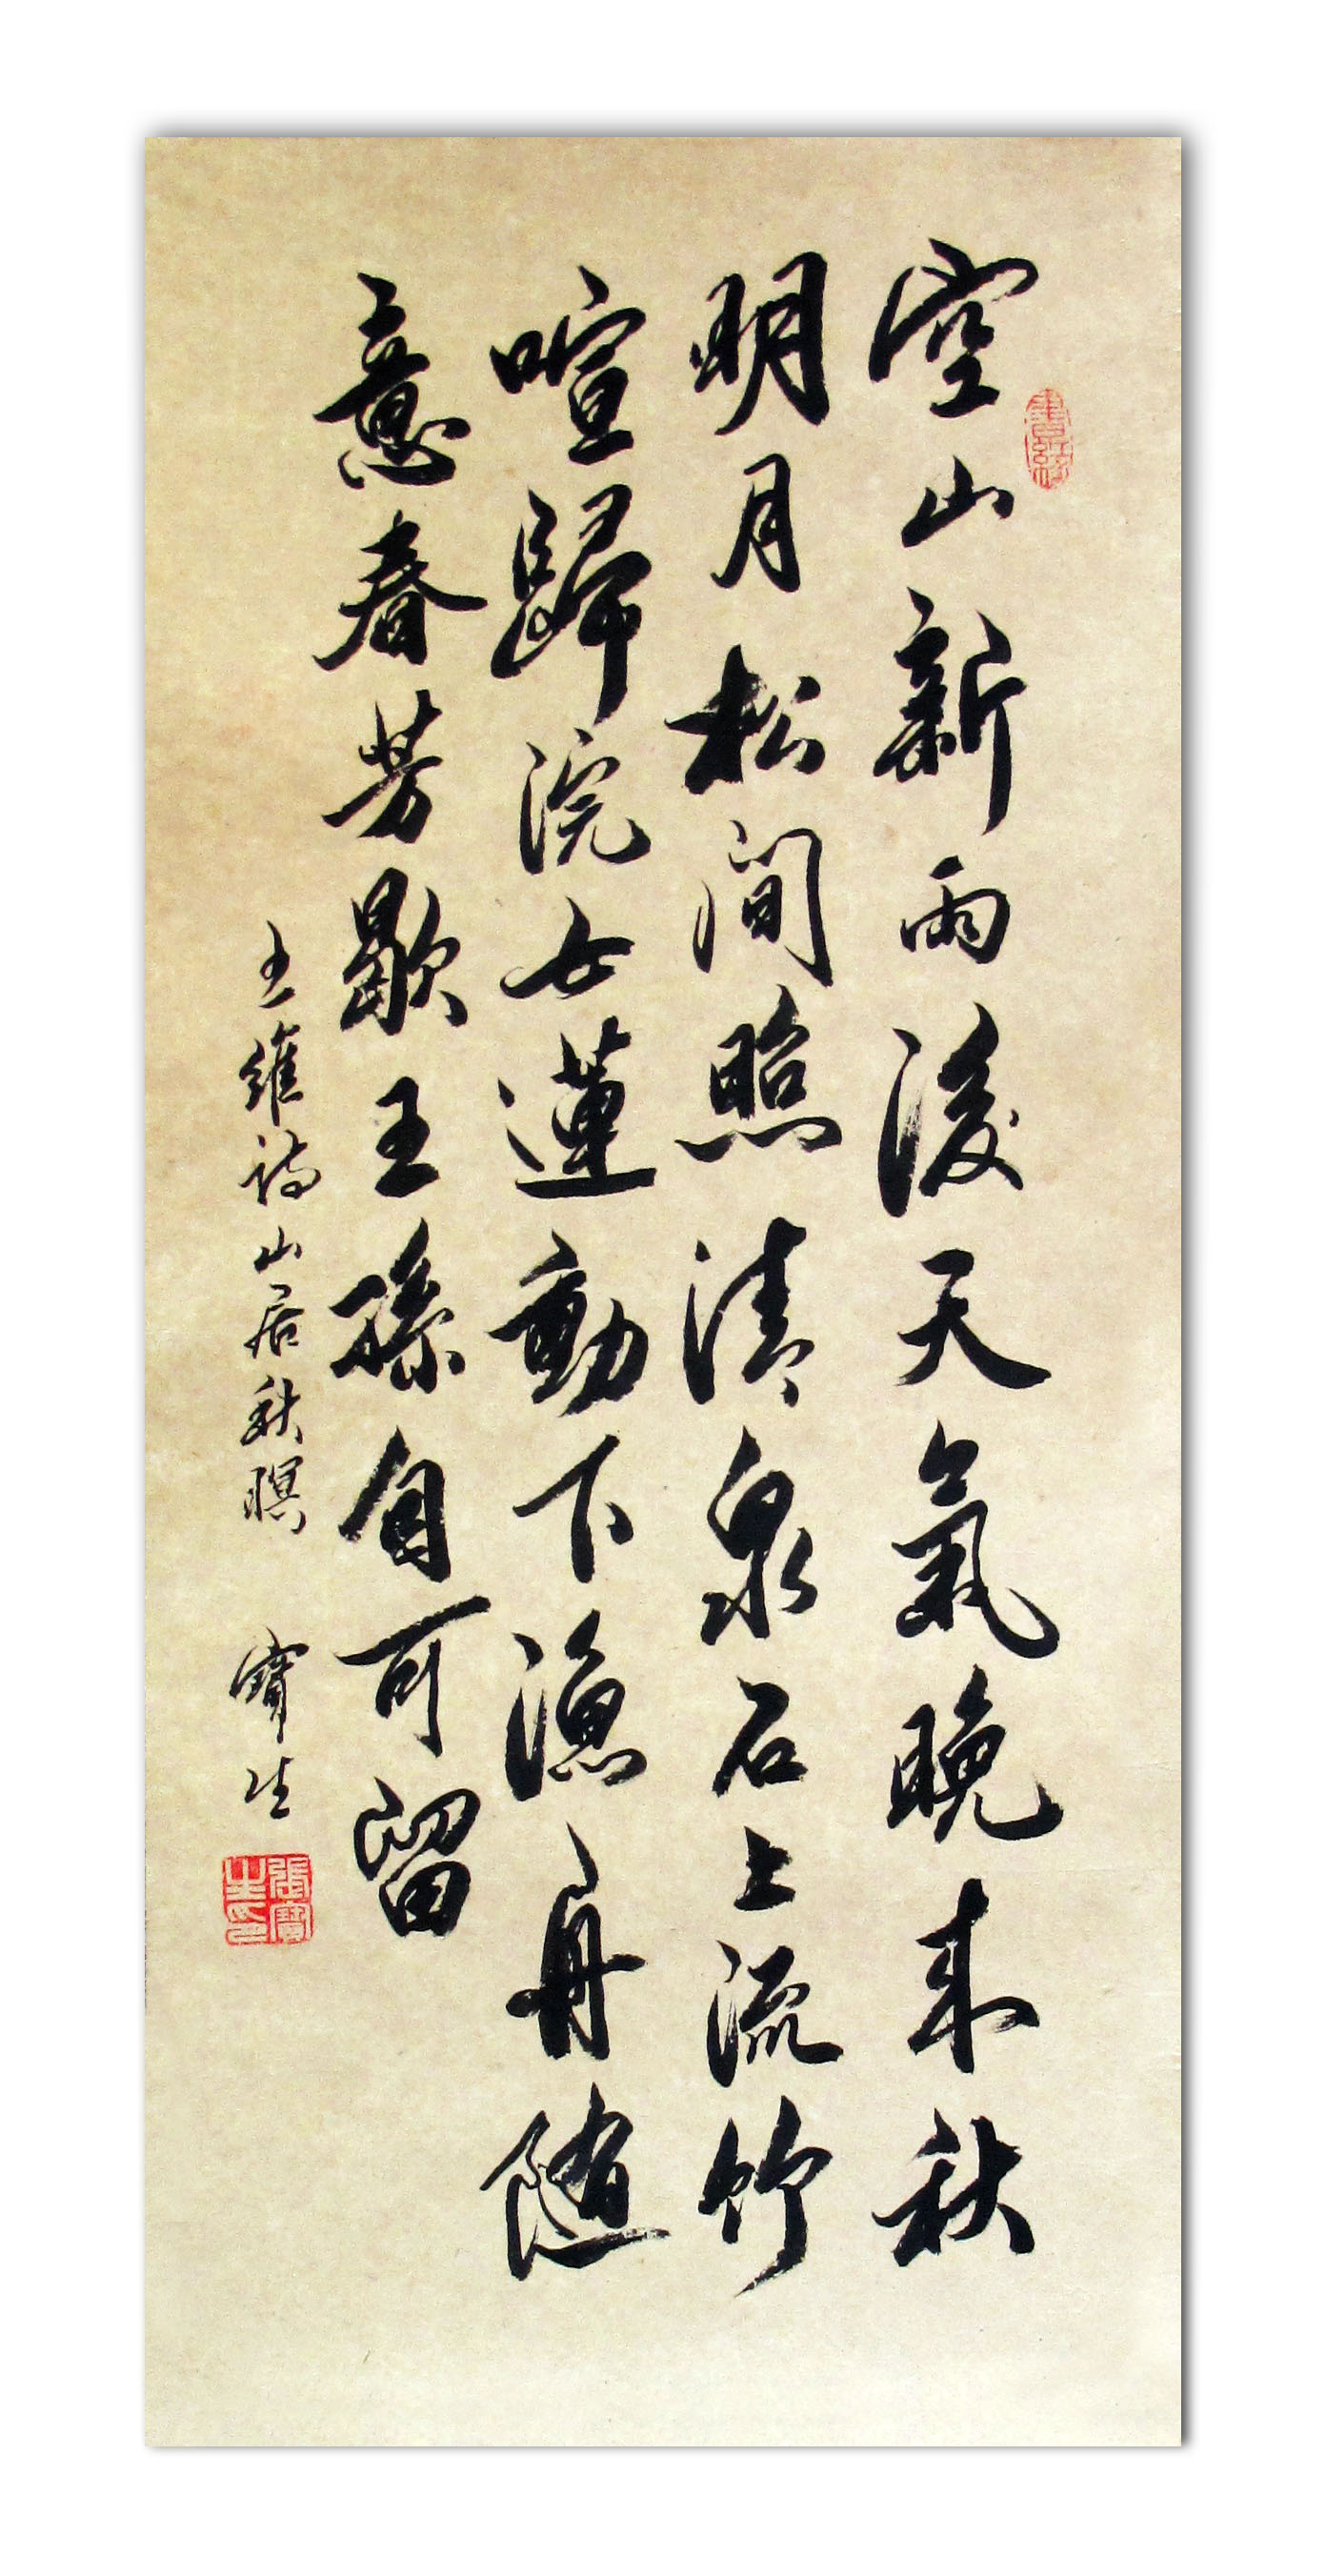 空山新雨後天氣晚来秋
明月松間照清泉石上流竹
喧歸浣女蓮動下漁舟随
意春芳歇王孫自可留
王維詩山居秋暝 寶生
書緣
張寶生印